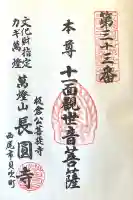 第三十三番
本尊十一面観世音菩薩
板倉公菩提寺
萬燈山長圓寺
西尾市貝吹町
文化財指定
カギ萬燈